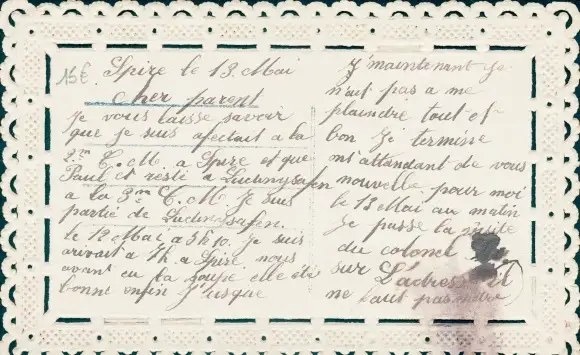 15€
Spire le 13 Mai
Cher parent
Je vous laisse savoir
que je suis afectait a la
2.m C. M. a Spire et que
Paul et resté a Ludwigsafen
a la 3m C. M. Je suis
partie de Ludwigsafen.
le 12 Mai a 5h10. Je suis
arivait a 7h a Spire nous
avont eu la soupe elle été
bonne enfin J'usque
J'maintenant Je
n'ait pas a me
plaindre tout et
bon Je termine
ent'attendant de vous
nouvelle pour moi
le 13 Mai au matin
Je passe la visite
du colonel
sur L'adresse il
ne faut pas mètre